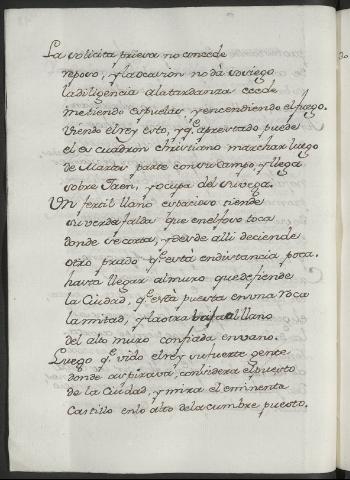 La solicita prieva no concede
reposo, y la ocasion no dà sosiego
la diligencia a la tardanza cede
metiendo espuelas, y encendiendo el fuego.
Viendo el rey esto, y qe. aprestado puede
el esquadron christiano marchar luego
de Martos parte con su campo, y llega
sobre Jaen, y ocupa del su vega.
Un fertil llano espacioso tiende
su verde falda que en el foso toca
donde se corta, y desde alli deciende
otro prado qe. està en distancia poca.
hasta llegar al muro que defiende
la Ciudad, qe. està puesta en una roca
la mitad, y la otra baja al llano
del alto muro confiada en vano.
Luego qe. vido el rey su fuerte gente
donde aspirava, considera el puesto
de la Ciudad, y mira el eminente
Castillo en lo alto de la cumbre puesto.